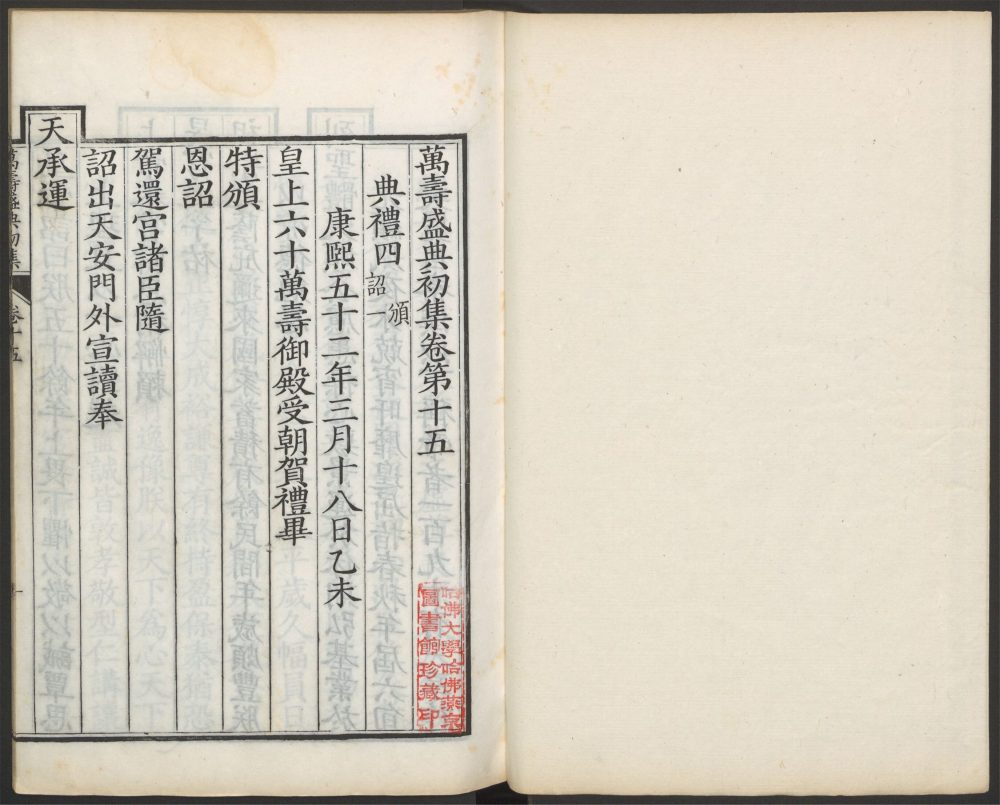 萬壽盛典初集卷第十五
典禮四 頒詔一
康熙五十二年三月十八日乙未
皇上六十萬壽御殿受朝賀禮畢
特頒
恩詔
駕還宮諸臣隨
詔出天安門外宣讀奉
天承運
萬壽盛典初集
卷十五
一
哈佛大學哈佛燕京
圖書館珍藏印